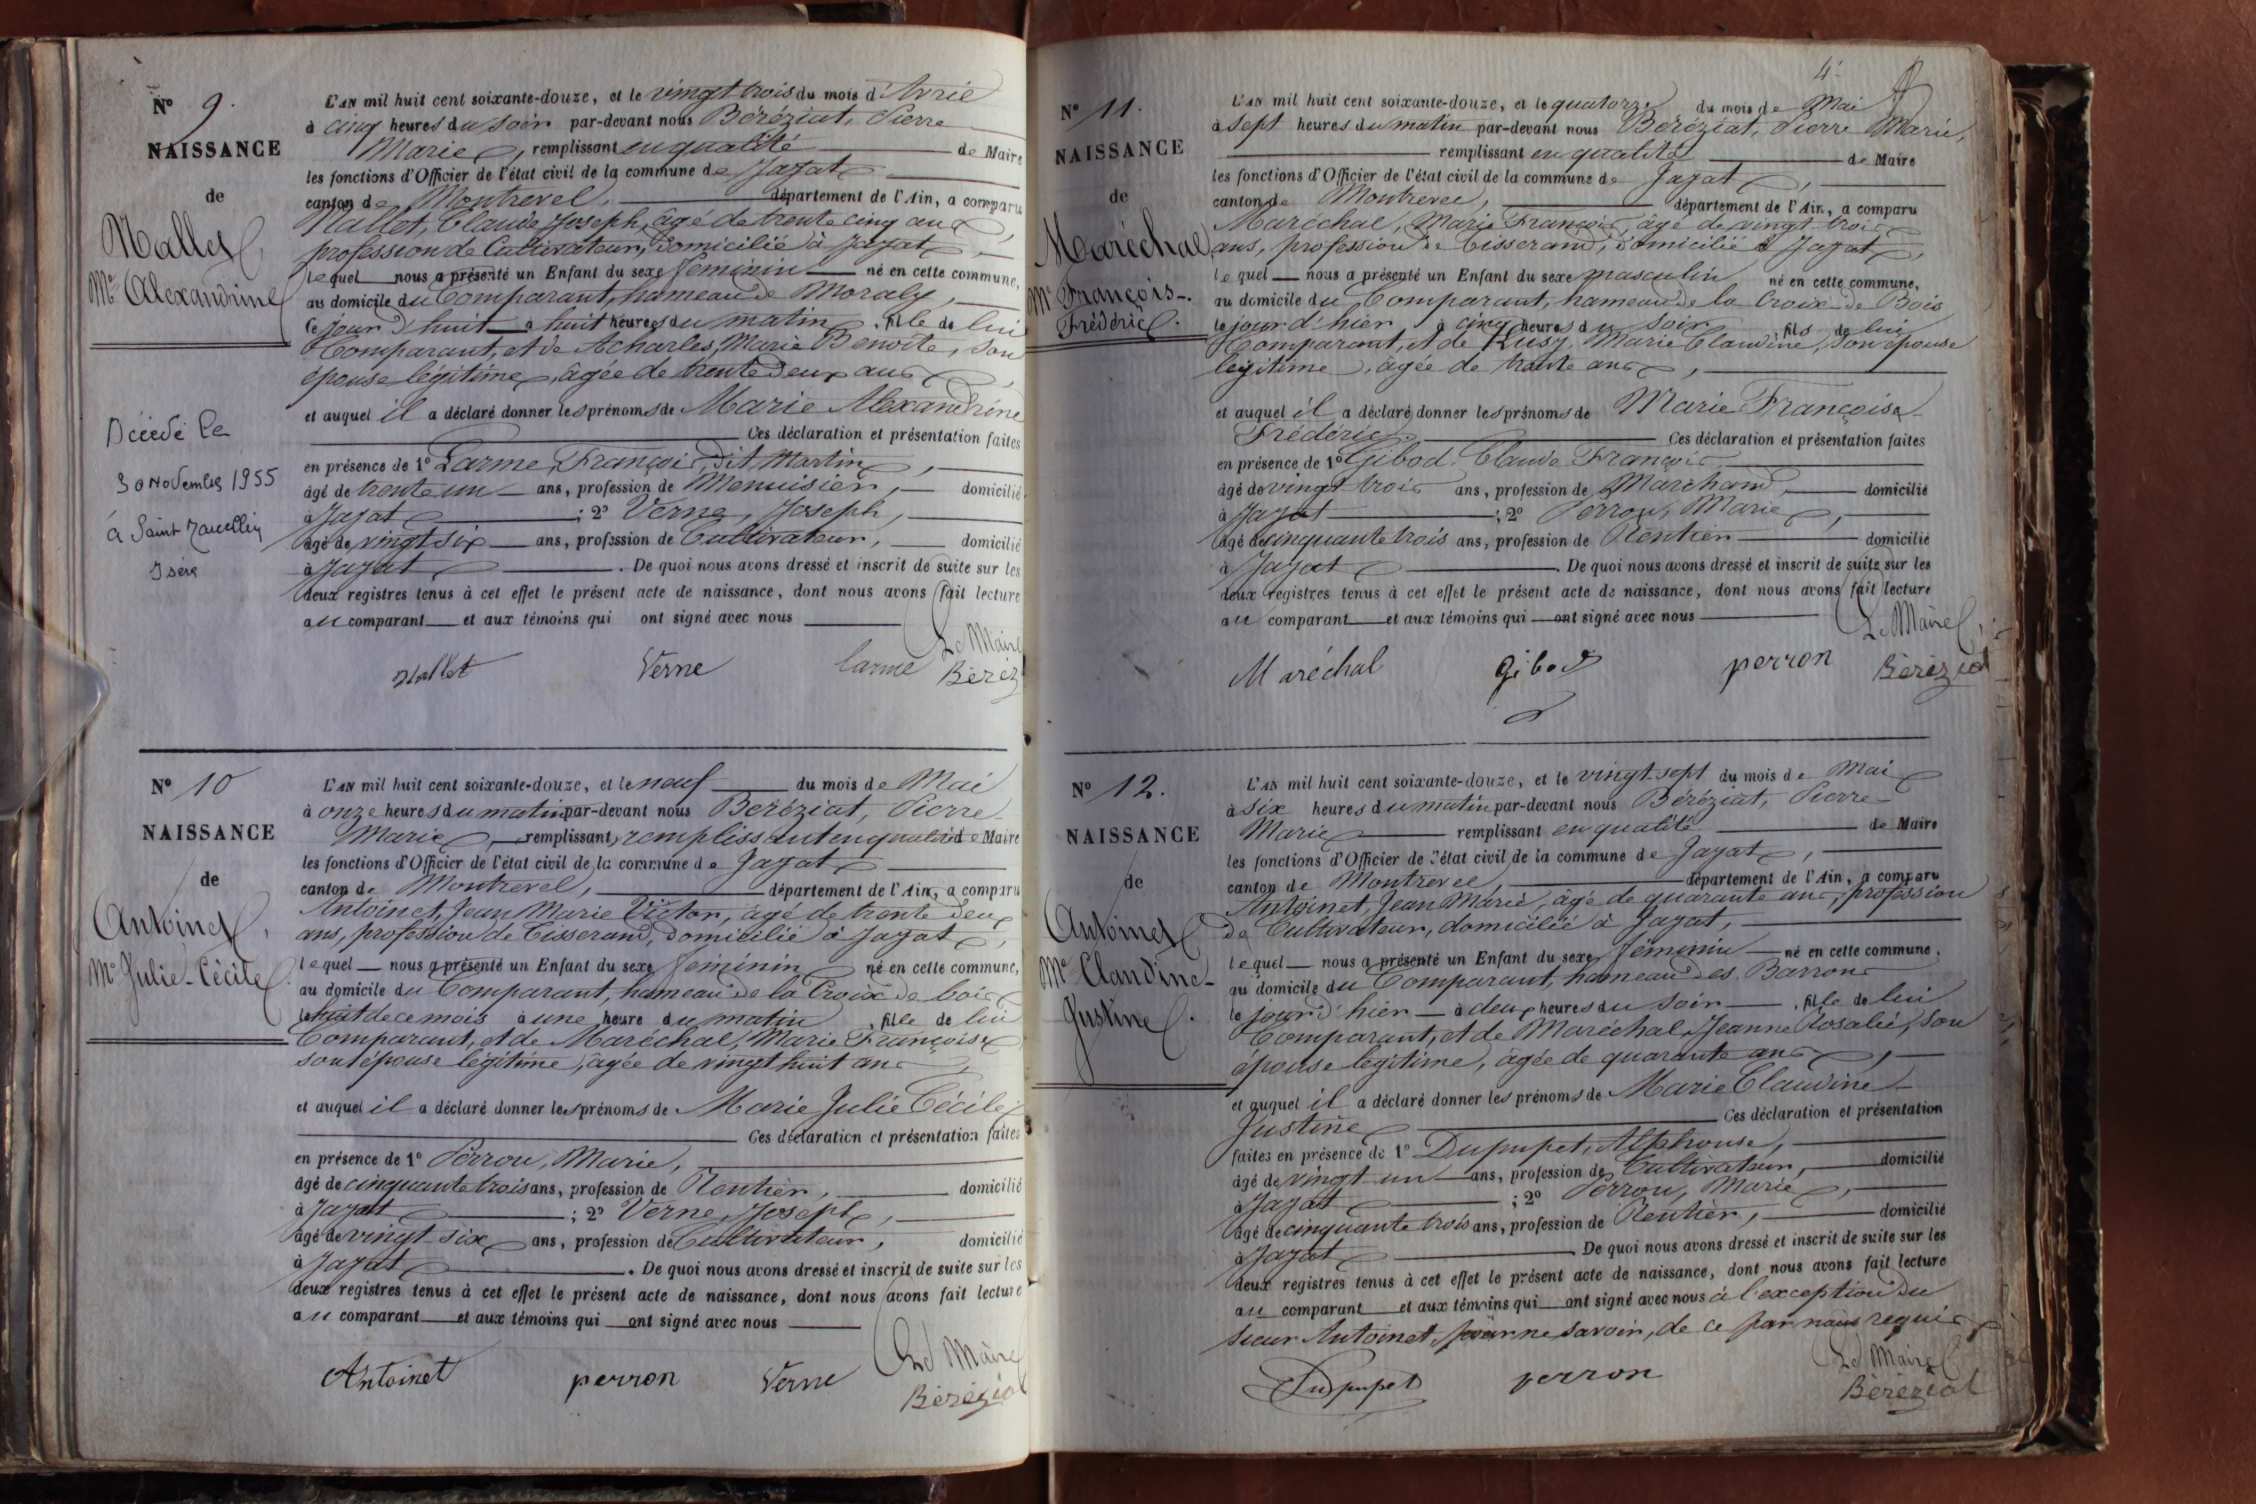 N° 9.
NAISSANCE
de
Mallet,
Mie Alexandrine
Décédé le
30 Novembre 1955
à Saint Marcellin
Isère
L'AN mil huit cent soixante-douze, et le vingt trois du mois d'Avril
à cinq heures du soir par-devant nous Béréziat, Pierre
Marie, remplissant en qualité de Maire
les fonctions d'Officier de l'état civil de la commune de Jayat
canton de Montrevel, département de l'Ain, a comparu
Mallet, Claude Joseph, âgé de trente cinq ans,
profession de Cultivateur, domicilié à Jayat,
lequel nous a présenté un Enfant du sexe féminin né en cette commune,
au domicile du Comparant, hameau de Moraly,
ce jour d'huit à huit heures du matin, fille de lui
Comparant, et de Acharles, Marie Benoite, son
épouse légitime, âgée de trente deux ans,
et auquel il a déclaré donner les prénoms de Marie Alexandrine
Ces déclaration et présentation faites
en présence de 1° Larme, François, dit Martin,
âgé de trente un ans, profession de Menuisier, domicilié
à Jayat ; 2° Verne, Joseph,
âgé de vingt six ans, profession de Cultivateur, domicilié
à Jayat . De quoi nous avons dressé et inscrit de suite sur les
deux registres tenus à cet effet le présent acte de naissance, dont nous avons fait lecture
au comparant et aux témoins qui ont signé avec nous
Le Maire
Mallet Verne Larme Béréz
N° 10
NAISSANCE
de
Antoinet,
Mie Julie-Cécile.
L'AN mil huit cent soixante-douze, et le neuf du mois de Mai
à onze heures du matin par-devant nous Beréziat, Pierre
Marie, remplissant, remplissant en qualité de Maire
les fonctions d'Officier de l'état civil de la commune de Jayat
canton de Montrevel, département de l'Ain, a comparu
Antoinet, Jean Marie Victor, âgé de trente deux
ans, profession de Tisserand, domicilié à Jayat,
lequel nous a présenté un Enfant du sexe féminin né en cette commune,
au domicile du Comparant, hameau de la Croix de bois
le huit de ce mois à une heure du matin, fille de lui
Comparant, et de Maréchal, Marie Françoise
son épouse légitime, âgée de vingt huit ans,
et auquel il a déclaré donner les prénoms de Marie Julie Cécile
Ces déclaration et présentation faites
en présence de 1° Perron, Marie,
âgé de cinquante trois ans, profession de Rentier, domicilié
à Jayat ; 2° Verne, Joseph,
âgé de vingt six ans, profession de Cultivateur, domicilié
à Jayat . De quoi nous avons dressé et inscrit de suite sur les
deux registres tenus à cet effet le présent acte de naissance, dont nous avons fait lecture
au comparant et aux témoins qui ont signé avec nous
Le Maire
Antoinet perron Verne Béréziat
4
N° 11.
NAISSANCE
de
Maréchal,
Mie François-
Frédéric.
L'AN mil huit cent soixante-douze, et le quatorze du mois de Mai
à sept heures du matin par-devant nous Béréziat, Pierre Marie,
remplissant en qualité de Maire
les fonctions d'Officier de l'état civil de la commune de Jayat,
canton de Montrevel, département de l'Ain, a comparu
Maréchal, Marie François, âgé de vingt trois
ans, profession de Tisserand, domicilié à Jayat,
lequel nous a présenté un Enfant du sexe masculin né en cette commune,
au domicile du Comparant, hameau de la Croix-de-Bois
le jour d'hier à cinq heures du soir, fils de lui
Comparant, et de Rusy, Marie Claudine, son épouse
légitime, âgée de trente ans,
et auquel il a déclaré donner les prénoms de Marie François
Frédéric Ces déclaration et présentation faites
en présence de 1° Gibod, Claude François
âgé de vingt trois ans, profession de Marchand, domicilié
à Jayat ; 2° Perron, Marie,
âgé de cinquante trois ans, profession de Rentier domicilié
à Jayat . De quoi nous avons dressé et inscrit de suite sur les
deux registres tenus à cet effet le présent acte de naissance, dont nous avons fait lecture
au comparant et aux témoins qui ont signé avec nous
Le Maire,
Maréchal Gibod perron Béréziat
N° 12.
NAISSANCE
de
Antoinet
Mie Claudine-
Justine.
L'AN mil huit cent soixante-douze, et le vingt sept du mois de Mai
à six heures du matin par-devant nous Béréziat, Pierre
Marie remplissant en qualité de Maire
les fonctions d'Officier de l'état civil de la commune de Jayat,
canton de Montrevel, département de l'Ain, a comparu
Antoinet, Jean Marie, âgé de quarante ans, profession
de Cultivateur, domicilié à Jayat,
lequel nous a présenté un Enfant du sexe féminin né en cette commune,
au domicile du Comparant, hameau des Barrons
le jour d'hier à deux heures du soir, fille de lui
Comparant, et de Maréchal, Jeanne Rosalie, son
épouse légitime, âgée de quarante ans,
et auquel il a déclaré donner les prénoms de Marie Claudine
Justine Ces déclaration et présentation
faites en présence de 1° Dupupet, Alphonse,
âgé de vingt un ans, profession de Cultivateur, domicilié
à Jayat ; 2° Perron, Marie,
âgé de cinquante trois ans, profession de Rentier, domicilié
à Jayat De quoi nous avons dressé et inscrit de suite sur les
deux registres tenus à cet effet le présent acte de naissance, dont nous avons fait lecture
au comparant et aux témoins qui ont signé avec nous à l'exception du
sieur Antoinet, pour ne savoir, de ce par nous requis
Le Maire
Dupupet perron Béréziat